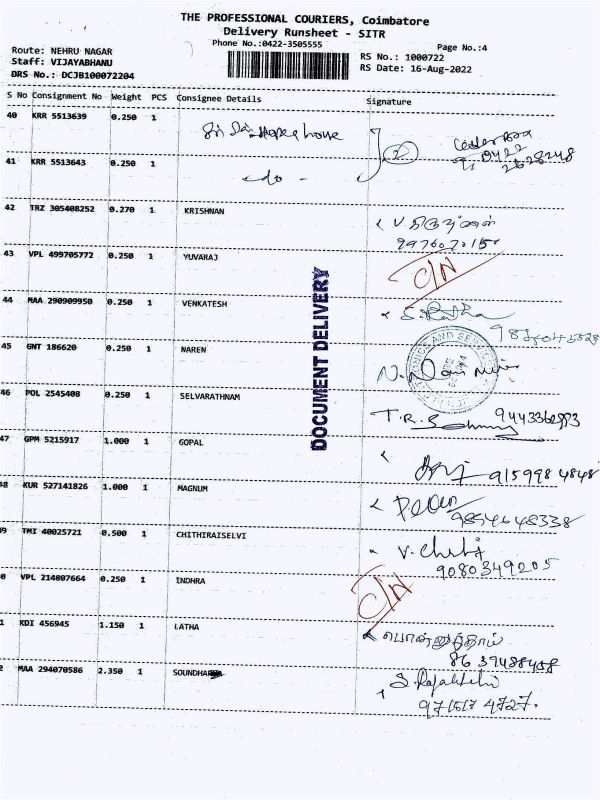 THE PROFESSIONAL COURIERS, Coimbatore
Delivery Runsheet - SITR
Phone No.:0422-3505555
Page No.:4
Route: NEHRU NAGAR
Staff: VIJAYABHANU
DRS No.: DCJB100072204
RS No.: 1000722
RS Date: 16-Aug-2022
S No Consignment No Weight PCS Consignee Details Signature
40 KRR 5513639 0.250 1
41 KRR 5513643 0.250 1 -do-
42 TRZ 305408252 0.270 1 KRISHNAN
43 VPL 499705772 0.250 1 YUVARAJ C/N
44 MAA 290909950 0.250 1 VENKATESH
45 GNT 186620 0.250 1 NAREN
46 POL 2545408 0.250 1 SELVARATHNAM
9443360993
47 GPM 5215917 1.000 1 GOPAL
915998 4848
48 KUR 527141826 1.000 1 MAGNUM
9854648338
49 TMI 40025721 0.500 1 CHITHIRAISELVI
9080349205
0 VPL 214807664 0.250 1 INDHRA C/N
1 KDI 456945 1.150 1 LATHA பொன்னுத்தாய்
8639488458
2 MAA 294070586 2.350 1
DOCUMENT DELIVERY